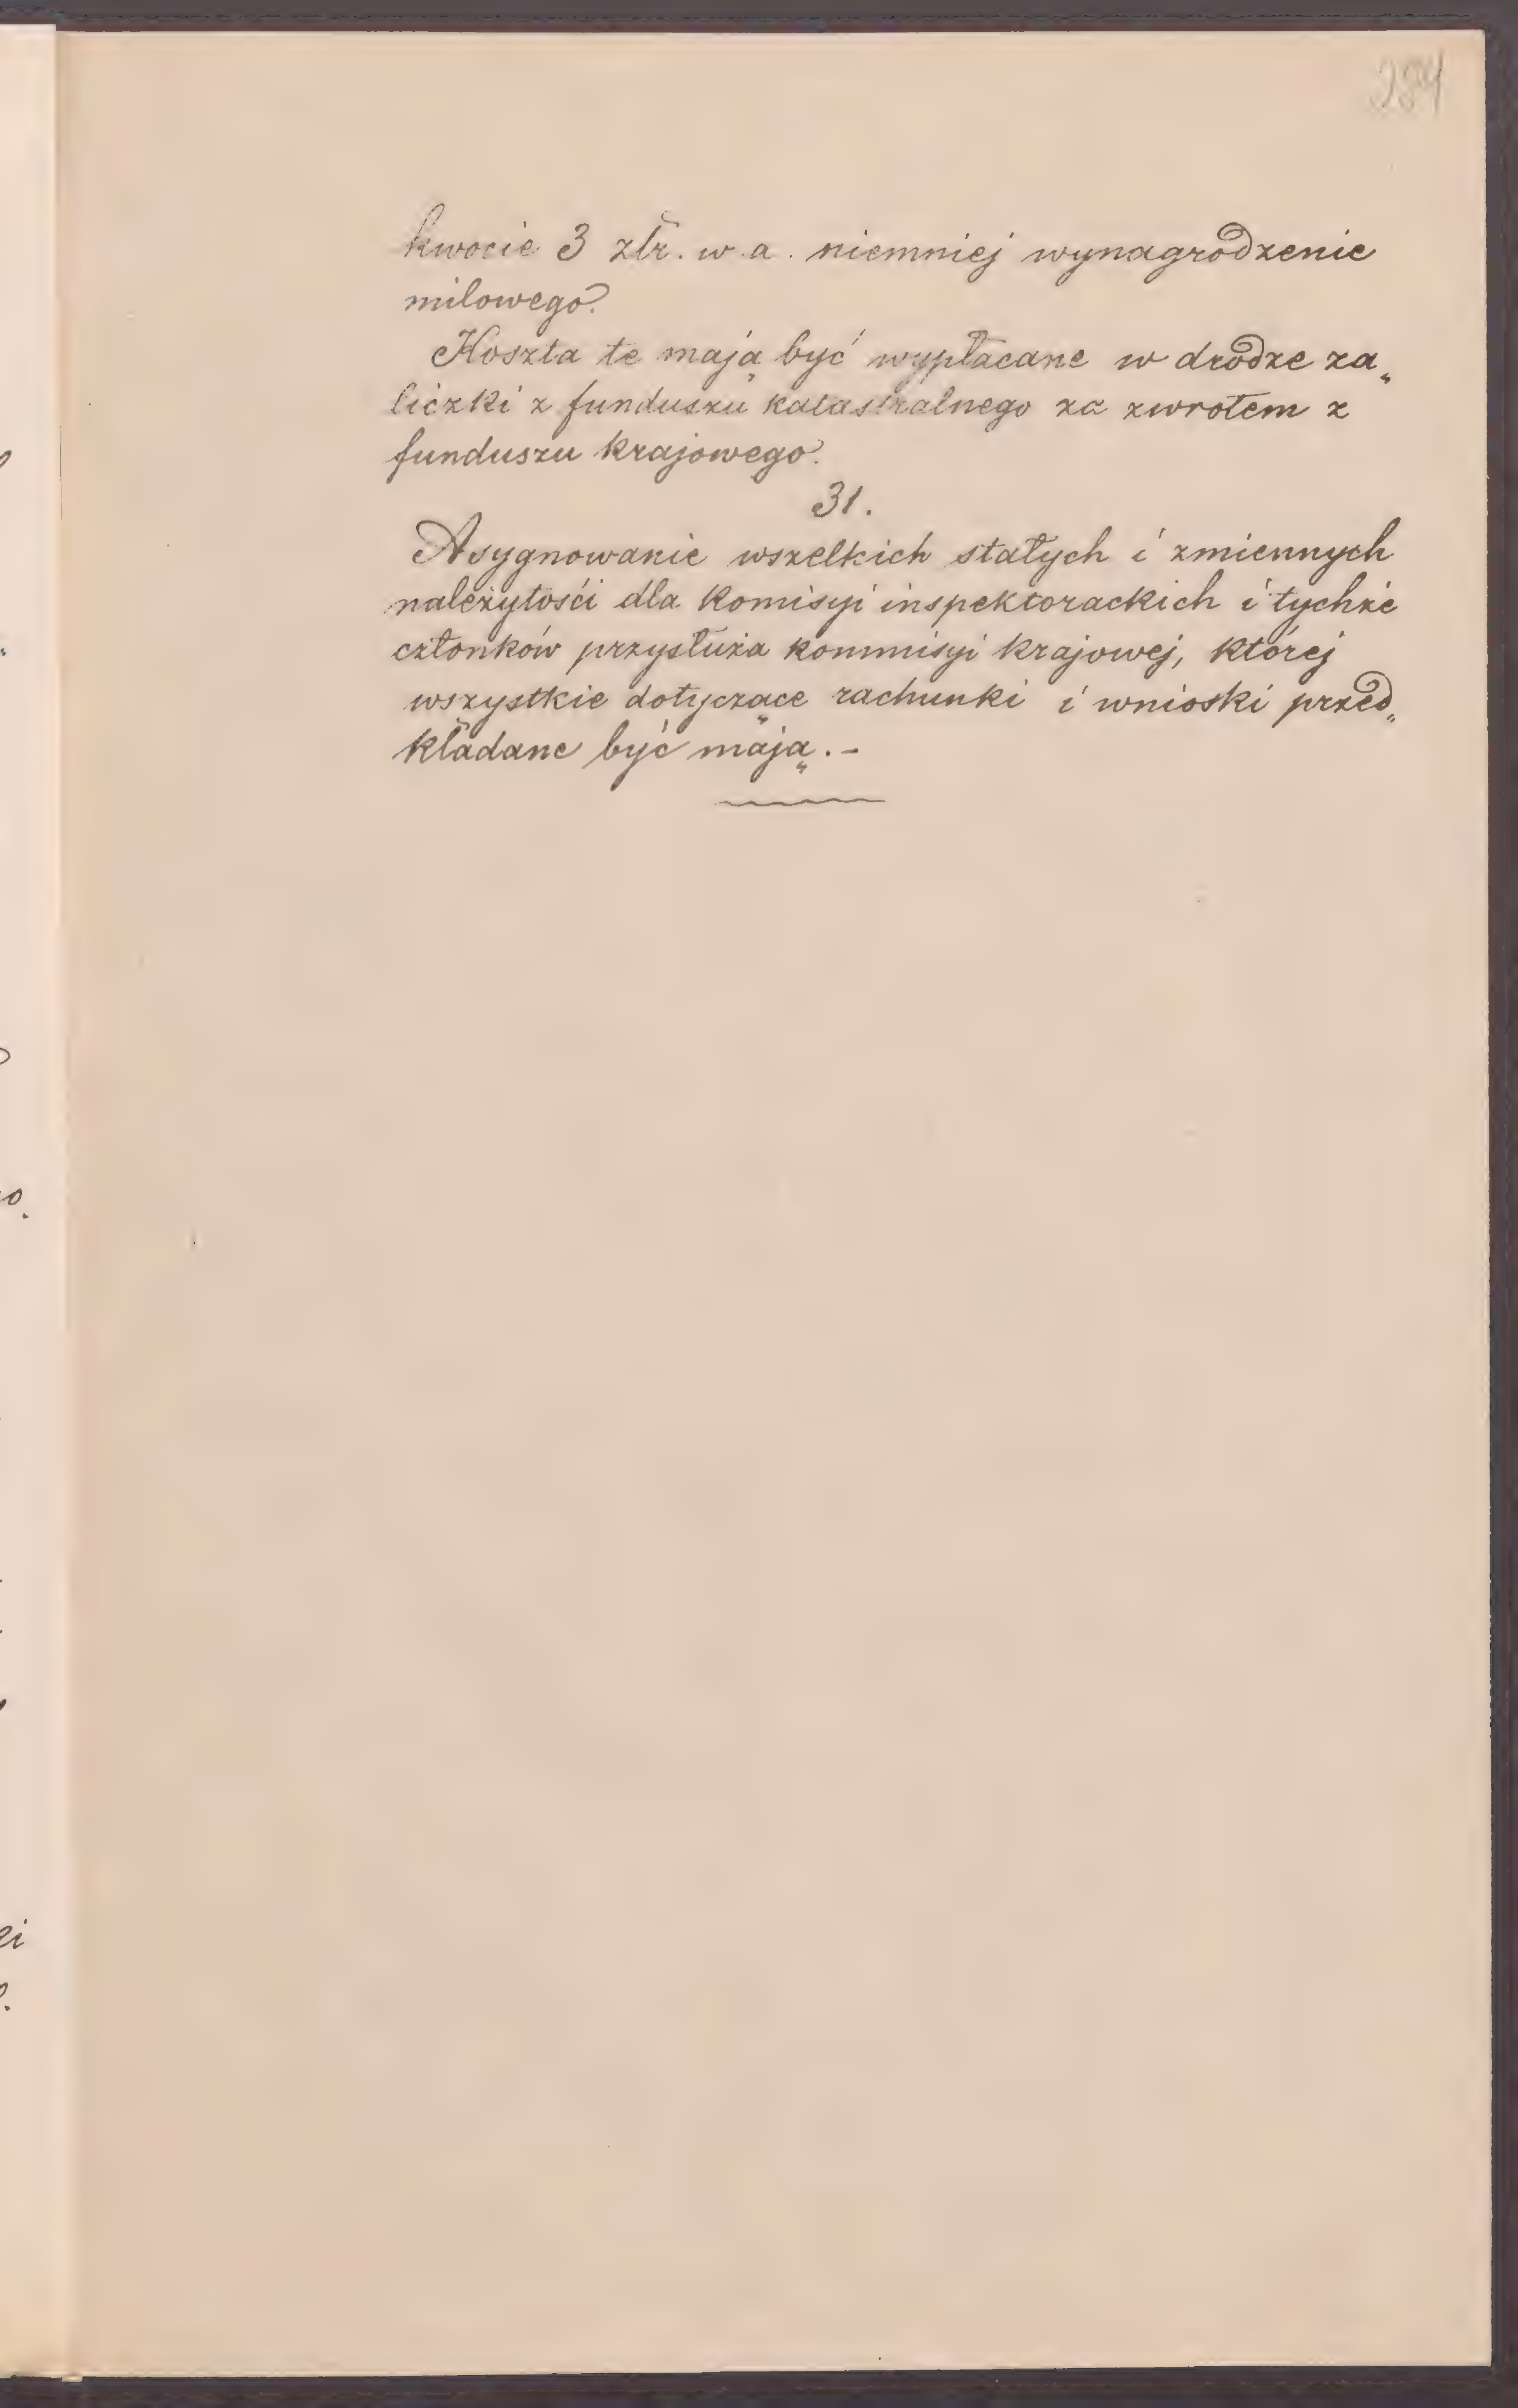 284
kwocie 3 złr. w. a. niemniej wynagrodzenie
milowego.
Koszta te mają być wypłacane w drodze za„
liczki z funduszu katastralnego za zwrotem z
funduszu krajowego.
31.
Asygnowanie wszelkich stałych i zmiennych
należytości dla komisyi inspektorackich i tychże
członków przysłuża kommisyi krajowej, której
wszystkie dotyczące rachunki i wnioski przed„
kładane być mają. –